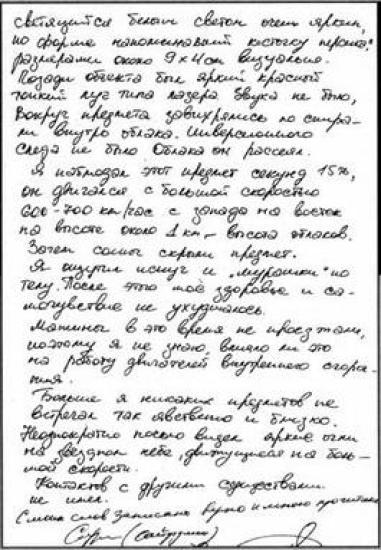 светящийся белым светом очень ярким,
по форме напоминавший косточку персика,
размерами около 9х4см визуально.
Позади объекта был яркий красный
тонкий луч типа лазера звука не было,
Вокруг предмета завихрялись по спира-
ли внутрь облака. Инверсионного
следа не было Облака он рассеял.
Я наблюдал этот предмет секунд 15%,
он двигался с большой скоростью
600-700 км/час с запада на восток
на высоте около 1 км – высота облаков.
Затем сопки скрыли предмет.
Я ощутил испуг и „мурашки" по
телу. После этого моё здоровье и са-
мочувствие не ухудшалось.
Машины в это время не проезжали,
поэтому я не знаю, влияло ли это
на работу двигателей внутреннего сгора-
ния.
Больше я никаких предметов не
встречал так явственно и близко.
Неоднократно после видел яркие огни
на звездном небе, движущиеся на боль-
шой скорости.
Контактов с другими существами
не имел.
С моих слов записано верно и мною прочитано